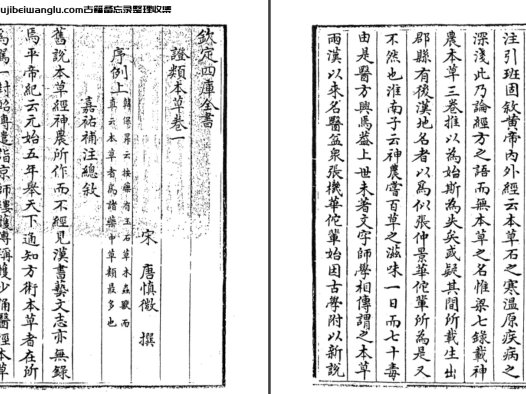 ujibeiwanglu.com古籍备忘录整理收集
欽定四庫全書
證類本草卷一
宋 唐慎微 撰
序例上
韓保昇云按藥有玉石草木蟲獸而
直云本草者為諸藥中草類最多也
嘉祐補注總敘
舊說本草經神農所作而不經見漢書藝文志亦無錄
焉平帝紀云元始五年舉天下通知方術本草者在所
為駕一封軺傳遣詣京師樓護傳稱護少誦醫經本草
注引班固敘黃帝內外經云本草石之寒溫原疾病之
深淺此乃論經方之語而無本草之名惟梁七錄載神
農本草三卷推以為始斯為失矣或疑其間所載生出
郡縣有後漢地名者以為似張仲景華佗輩所為是又
不然也淮南子云神農嘗百草之滋味一日而七十毒
由是醫方興焉蓋上世未著文字師學相傳謂之本草
兩漢以來名醫益眾張機華佗輩始因古學附以新說